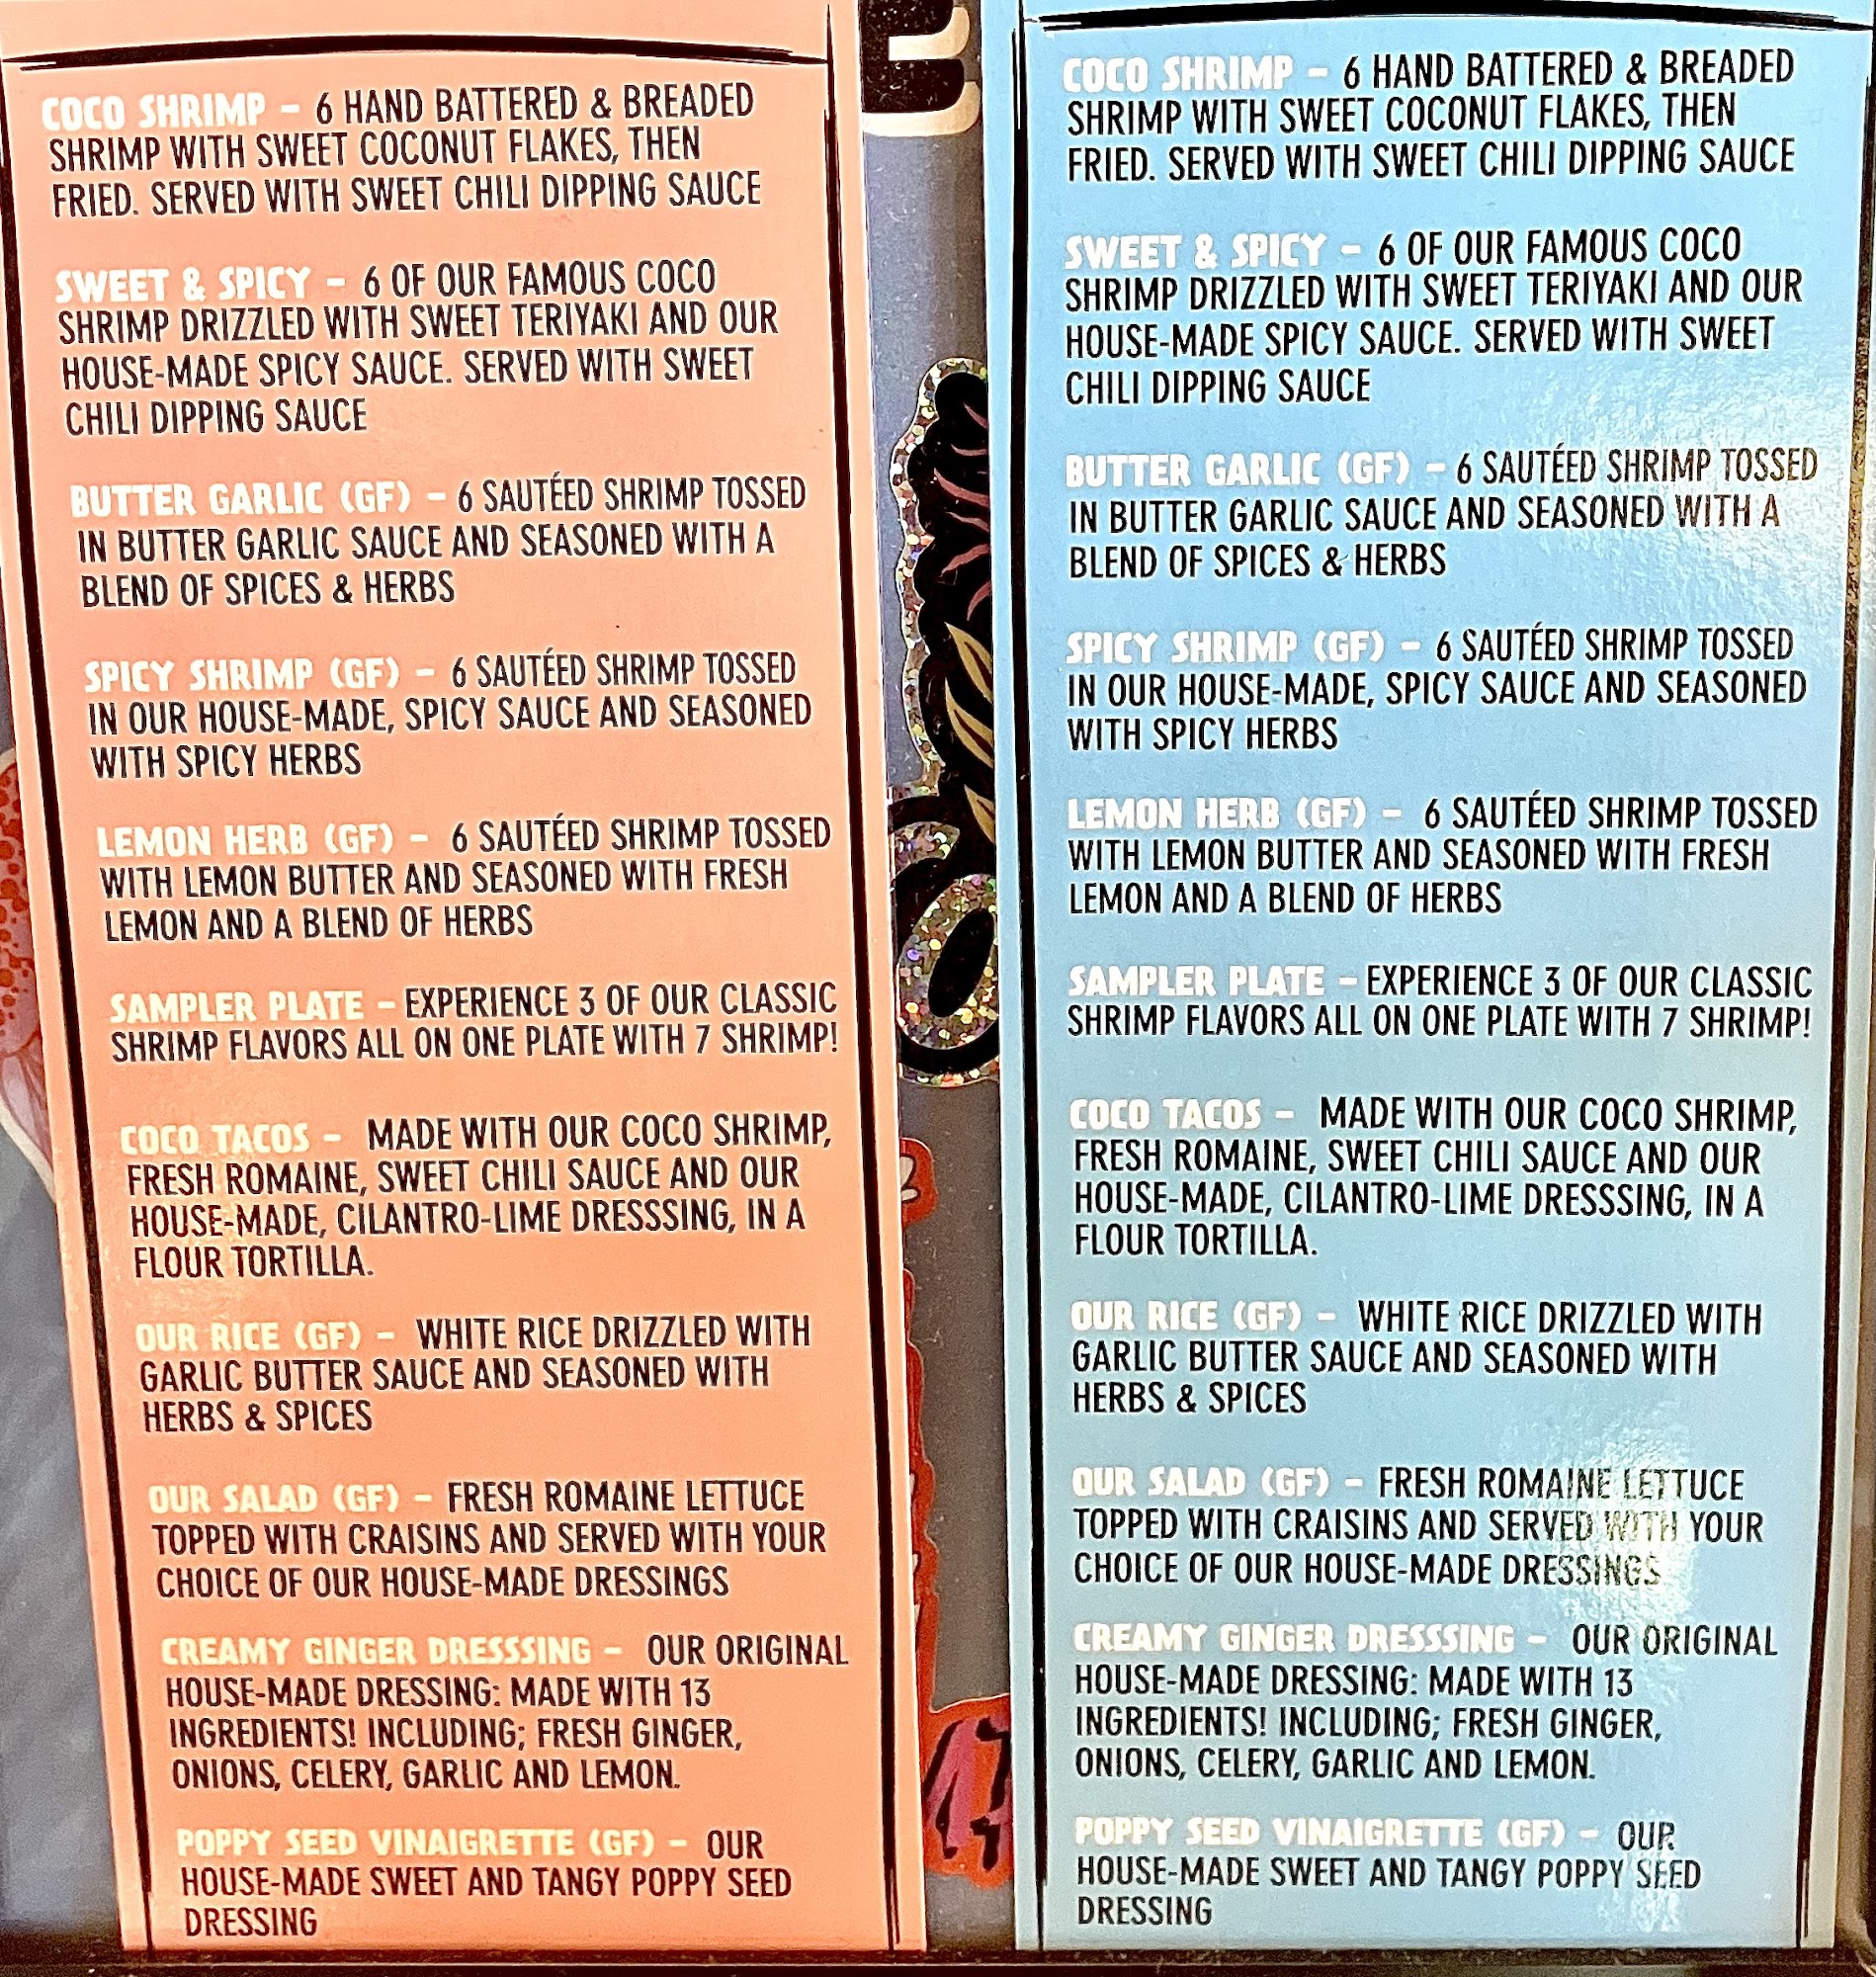 COCO SHRIMP – 6 HAND BATTERED & BREADED
SHRIMP WITH SWEET COCONUT FLAKES, THEN
FRIED. SERVED WITH SWEET CHILI DIPPING SAUCE
SWEET & SPICY – 6 OF OUR FAMOUS COCO
SHRIMP DRIZZLED WITH SWEET TERIYAKI AND OUR
HOUSE-MADE SPICY SAUCE. SERVED WITH SWEET
CHILI DIPPING SAUCE
BUTTER GARLIC (GF) – 6 SAUTÉED SHRIMP TOSSED
IN BUTTER GARLIC SAUCE AND SEASONED WITH A
BLEND OF SPICES & HERBS
SPICY SHRIMP (GF) – 6 SAUTÉED SHRIMP TOSSED
IN OUR HOUSE-MADE, SPICY SAUCE AND SEASONED
WITH SPICY HERBS
LEMON HERB (GF) – 6 SAUTÉED SHRIMP TOSSED
WITH LEMON BUTTER AND SEASONED WITH FRESH
LEMON AND A BLEND OF HERBS
SAMPLER PLATE – EXPERIENCE 3 OF OUR CLASSIC
SHRIMP FLAVORS ALL ON ONE PLATE WITH 7 SHRIMP!
COCO TACOS – MADE WITH OUR COCO SHRIMP,
FRESH ROMAINE, SWEET CHILI SAUCE AND OUR
HOUSE-MADE, CILANTRO-LIME DRESSSING, IN A
FLOUR TORTILLA.
OUR RICE (GF) – WHITE RICE DRIZZLED WITH
GARLIC BUTTER SAUCE AND SEASONED WITH
HERBS & SPICES
OUR SALAD (GF) – FRESH ROMAINE LETTUCE
TOPPED WITH CRAISINS AND SERVED WITH YOUR
CHOICE OF OUR HOUSE-MADE DRESSINGS
CREAMY GINGER DRESSSING – OUR ORIGINAL
HOUSE-MADE DRESSING: MADE WITH 13
INGREDIENTS! INCLUDING; FRESH GINGER,
ONIONS, CELERY, GARLIC AND LEMON.
POPPY SEED VINAIGRETTE (GF) – OUR
HOUSE-MADE SWEET AND TANGY POPPY SEED
DRESSING
COCO SHRIMP – 6 HAND BATTERED & BREADED
SHRIMP WITH SWEET COCONUT FLAKES, THEN
FRIED. SERVED WITH SWEET CHILI DIPPING SAUCE
SWEET & SPICY – 6 OF OUR FAMOUS COCO
SHRIMP DRIZZLED WITH SWEET TERIYAKI AND OUR
HOUSE-MADE SPICY SAUCE. SERVED WITH SWEET
CHILI DIPPING SAUCE
BUTTER GARLIC (GF) – 6 SAUTÉED SHRIMP TOSSED
IN BUTTER GARLIC SAUCE AND SEASONED WITH A
BLEND OF SPICES & HERBS
SPICY SHRIMP (GF) – 6 SAUTÉED SHRIMP TOSSED
IN OUR HOUSE-MADE, SPICY SAUCE AND SEASONED
WITH SPICY HERBS
LEMON HERB (GF) – 6 SAUTÉED SHRIMP TOSSED
WITH LEMON BUTTER AND SEASONED WITH FRESH
LEMON AND A BLEND OF HERBS
SAMPLER PLATE – EXPERIENCE 3 OF OUR CLASSIC
SHRIMP FLAVORS ALL ON ONE PLATE WITH 7 SHRIMP!
COCO TACOS – MADE WITH OUR COCO SHRIMP,
FRESH ROMAINE, SWEET CHILI SAUCE AND OUR
HOUSE-MADE, CILANTRO-LIME DRESSSING, IN A
FLOUR TORTILLA.
OUR RICE (GF) – WHITE RICE DRIZZLED WITH
GARLIC BUTTER SAUCE AND SEASONED WITH
HERBS & SPICES
OUR SALAD (GF) – FRESH ROMAINE LETTUCE
TOPPED WITH CRAISINS AND SERVED WITH YOUR
CHOICE OF OUR HOUSE-MADE DRESSINGS
CREAMY GINGER DRESSSING – OUR ORIGINAL
HOUSE-MADE DRESSING: MADE WITH 13
INGREDIENTS! INCLUDING; FRESH GINGER,
ONIONS, CELERY, GARLIC AND LEMON.
POPPY SEED VINAIGRETTE (GF) – OUR
HOUSE-MADE SWEET AND TANGY POPPY SEED
DRESSING